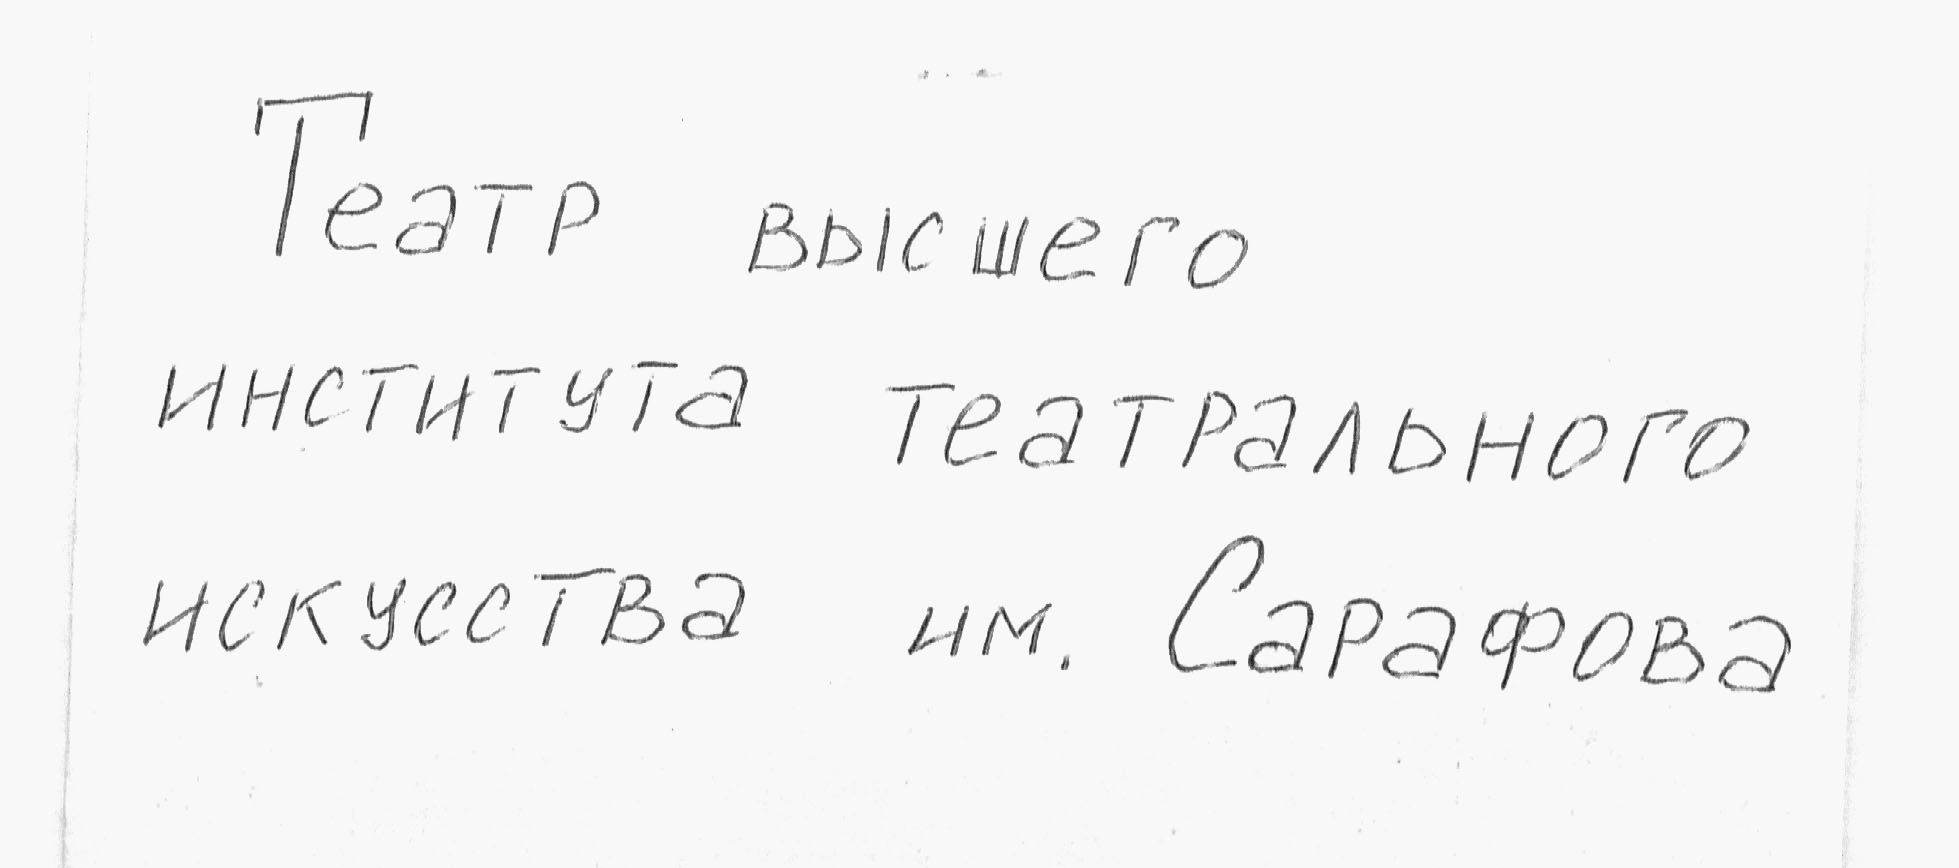 Театр высшего
института театрального
искусства им. Сарафова